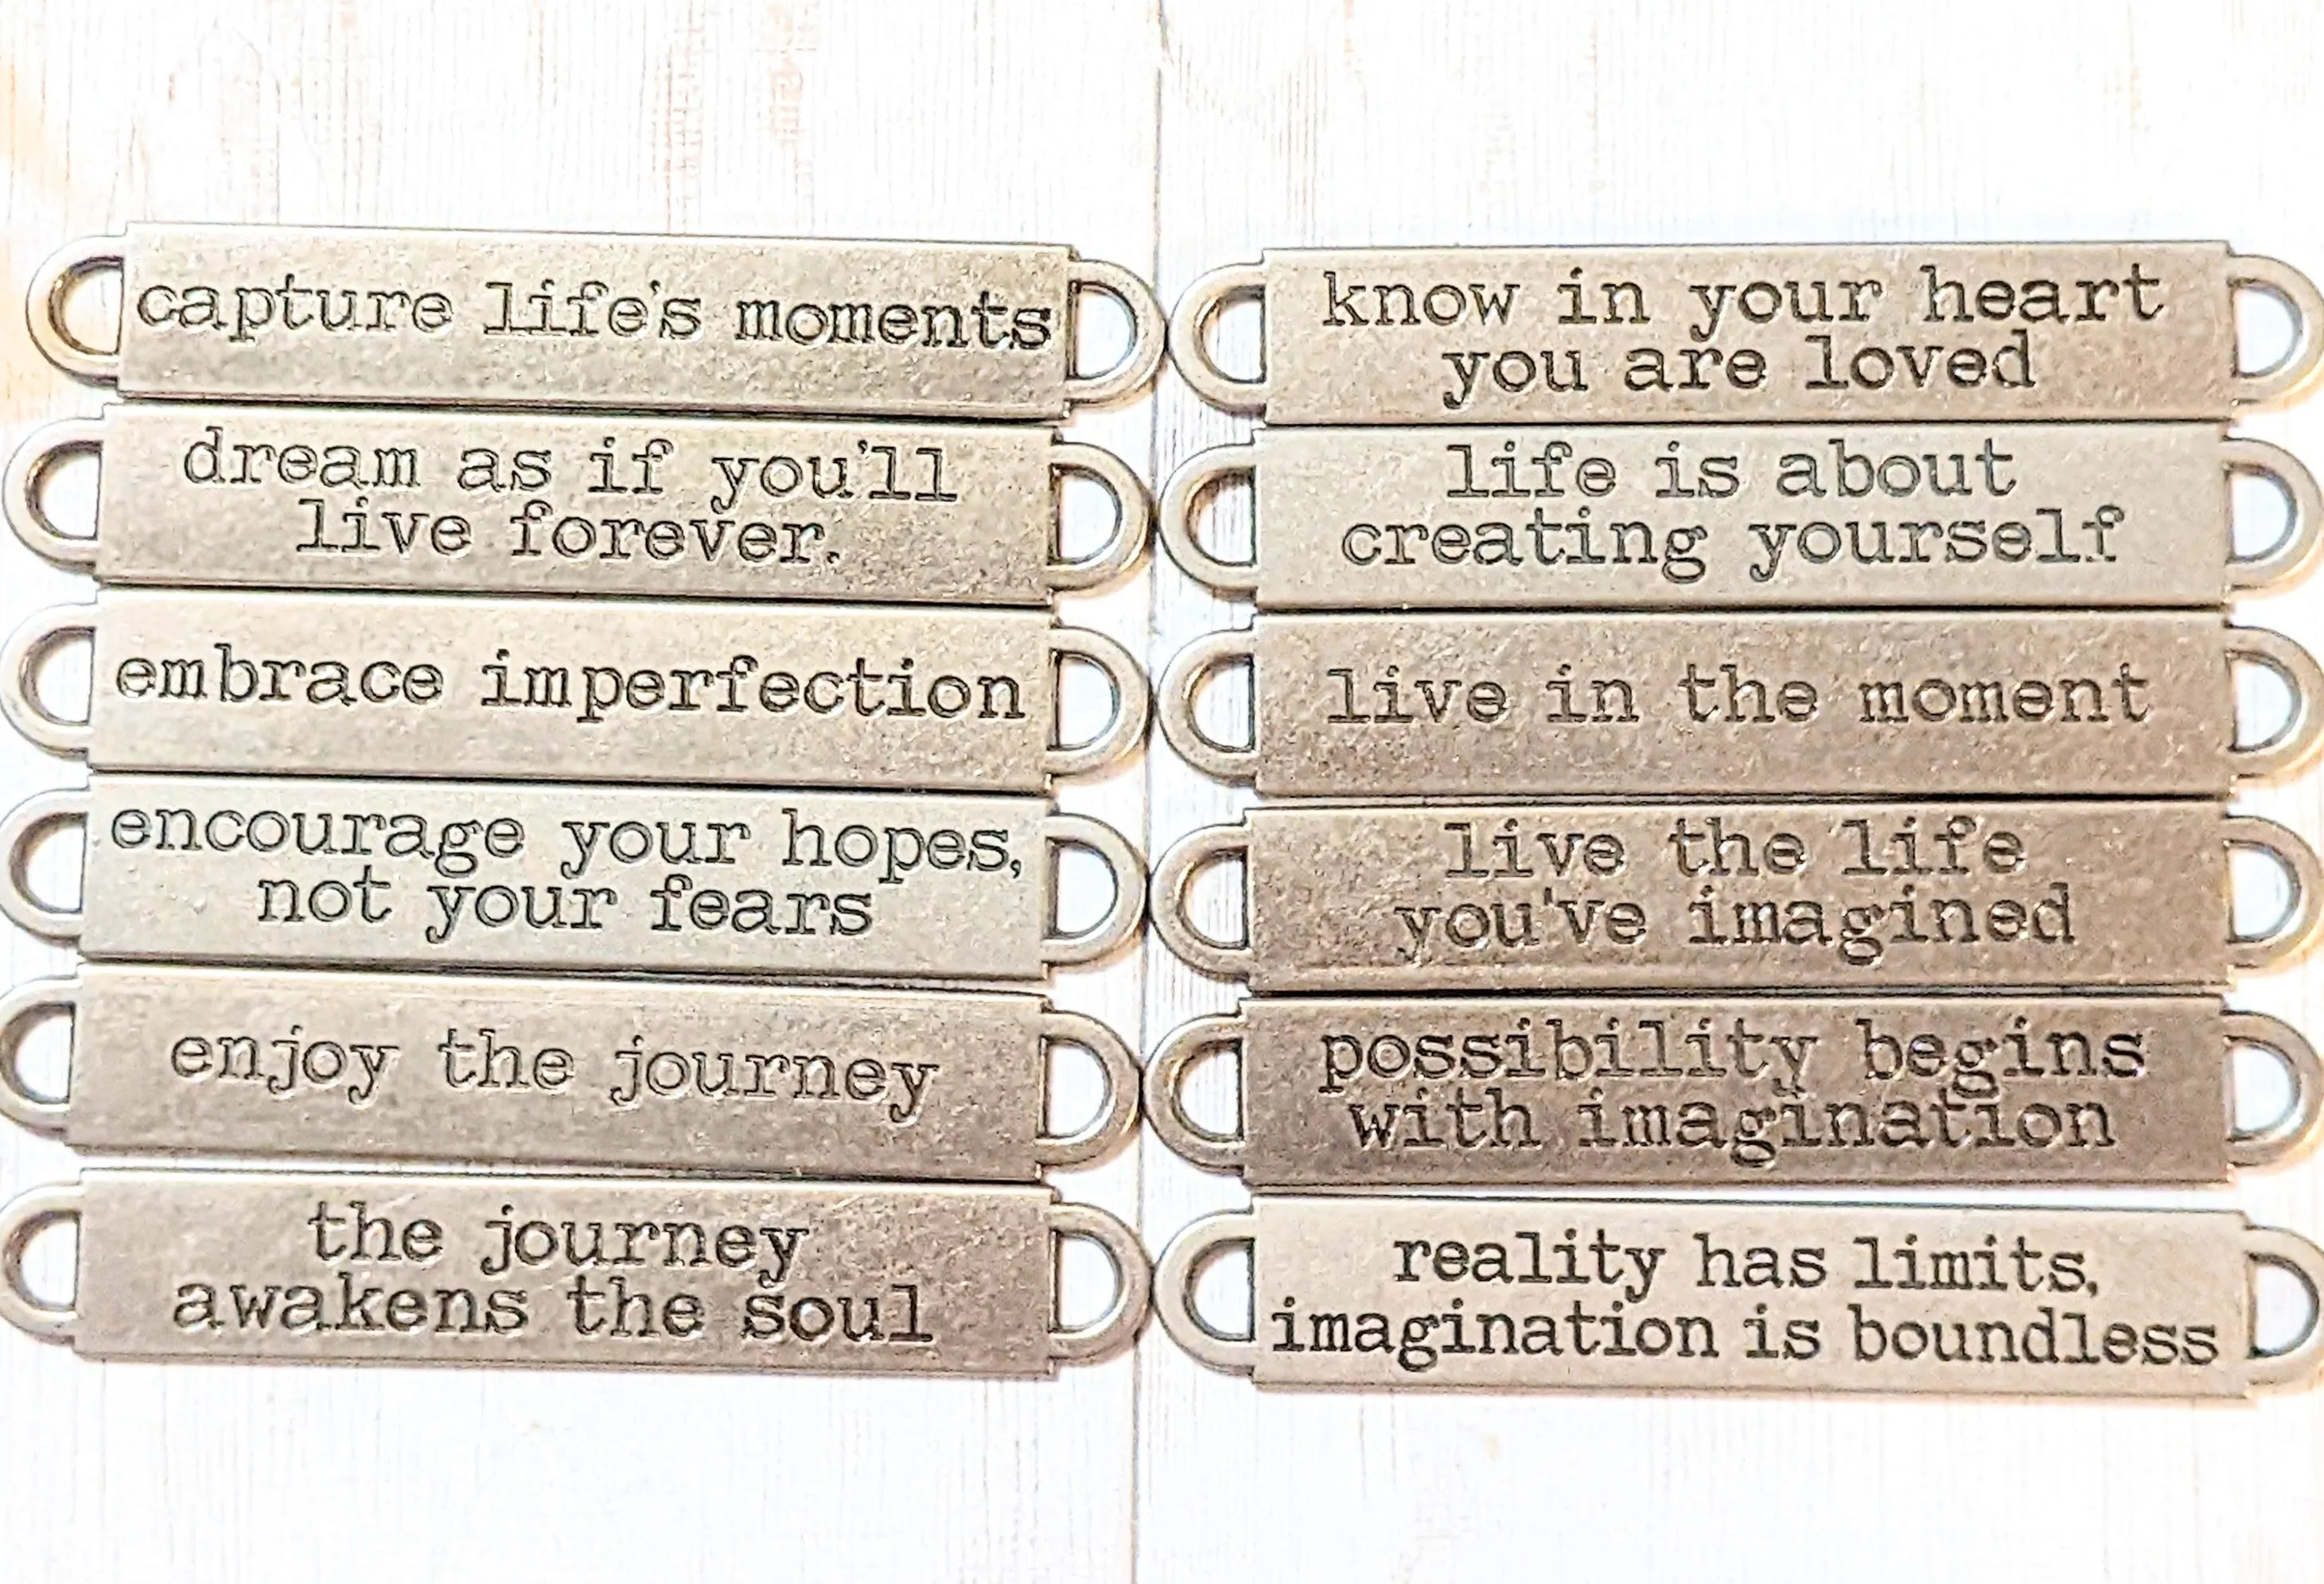 capture life's moments
dream as if you'll
live forever.
embrace imperfection
encourage your hopes,
not your fears
enjoy the journey
the journey
awakens the soul
know in your heart
you are loved
life is about
creating yourself
live in the moment
live the life
you've imagined
possibility begins
with imagination
reality has limits,
imagination is boundless